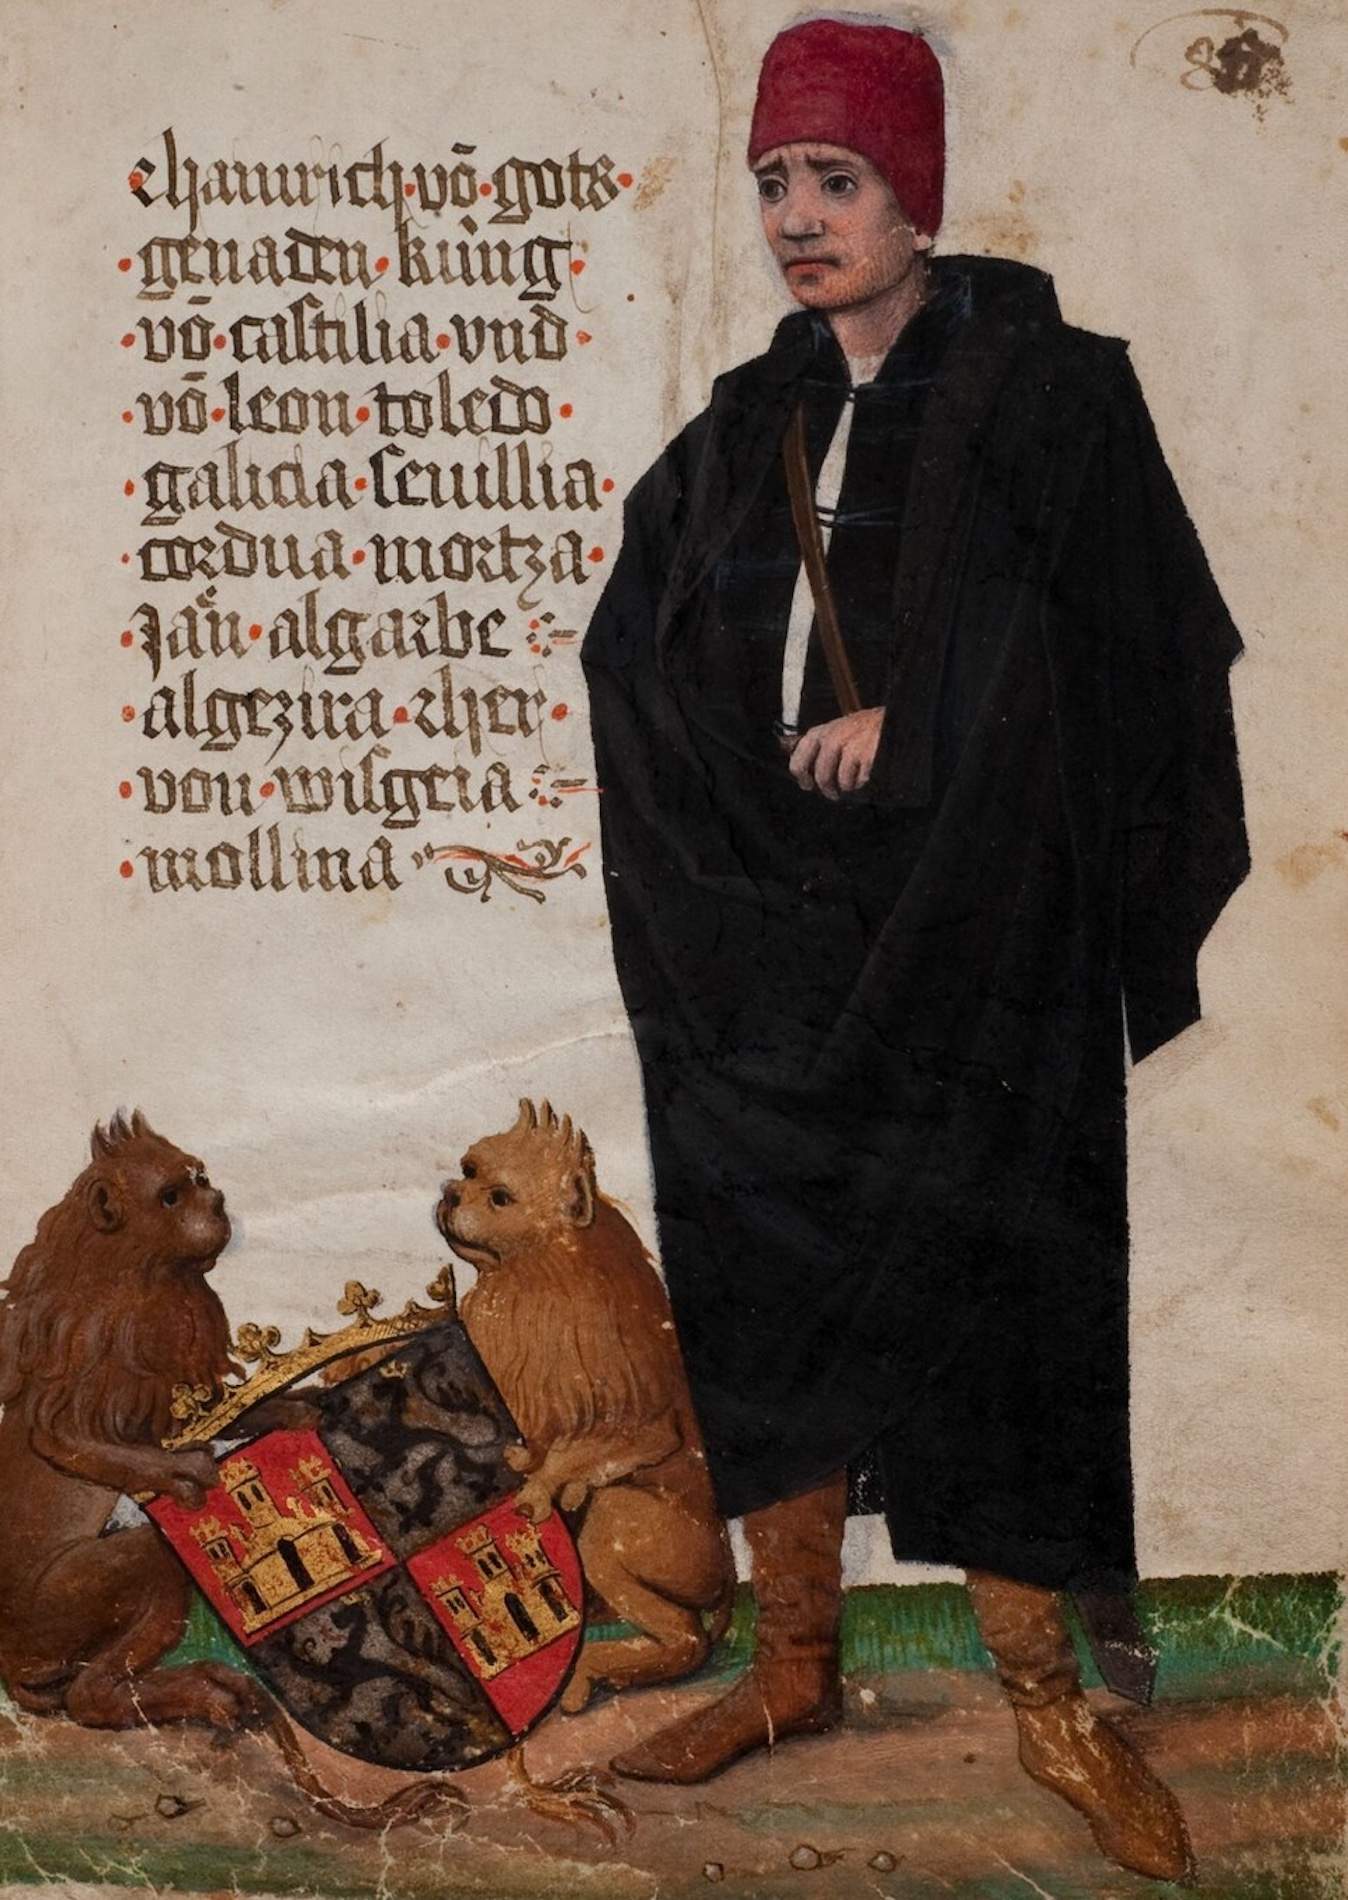 chainrich·vō·gots·
·genaden·küng·
·vō·castilia·vnd·
·vō·leon·toledo·
·galicia·seuillia·
·cordua·mortza·
·Jaen·algarbe
·algezira·
·von·wisgeia
·mollina